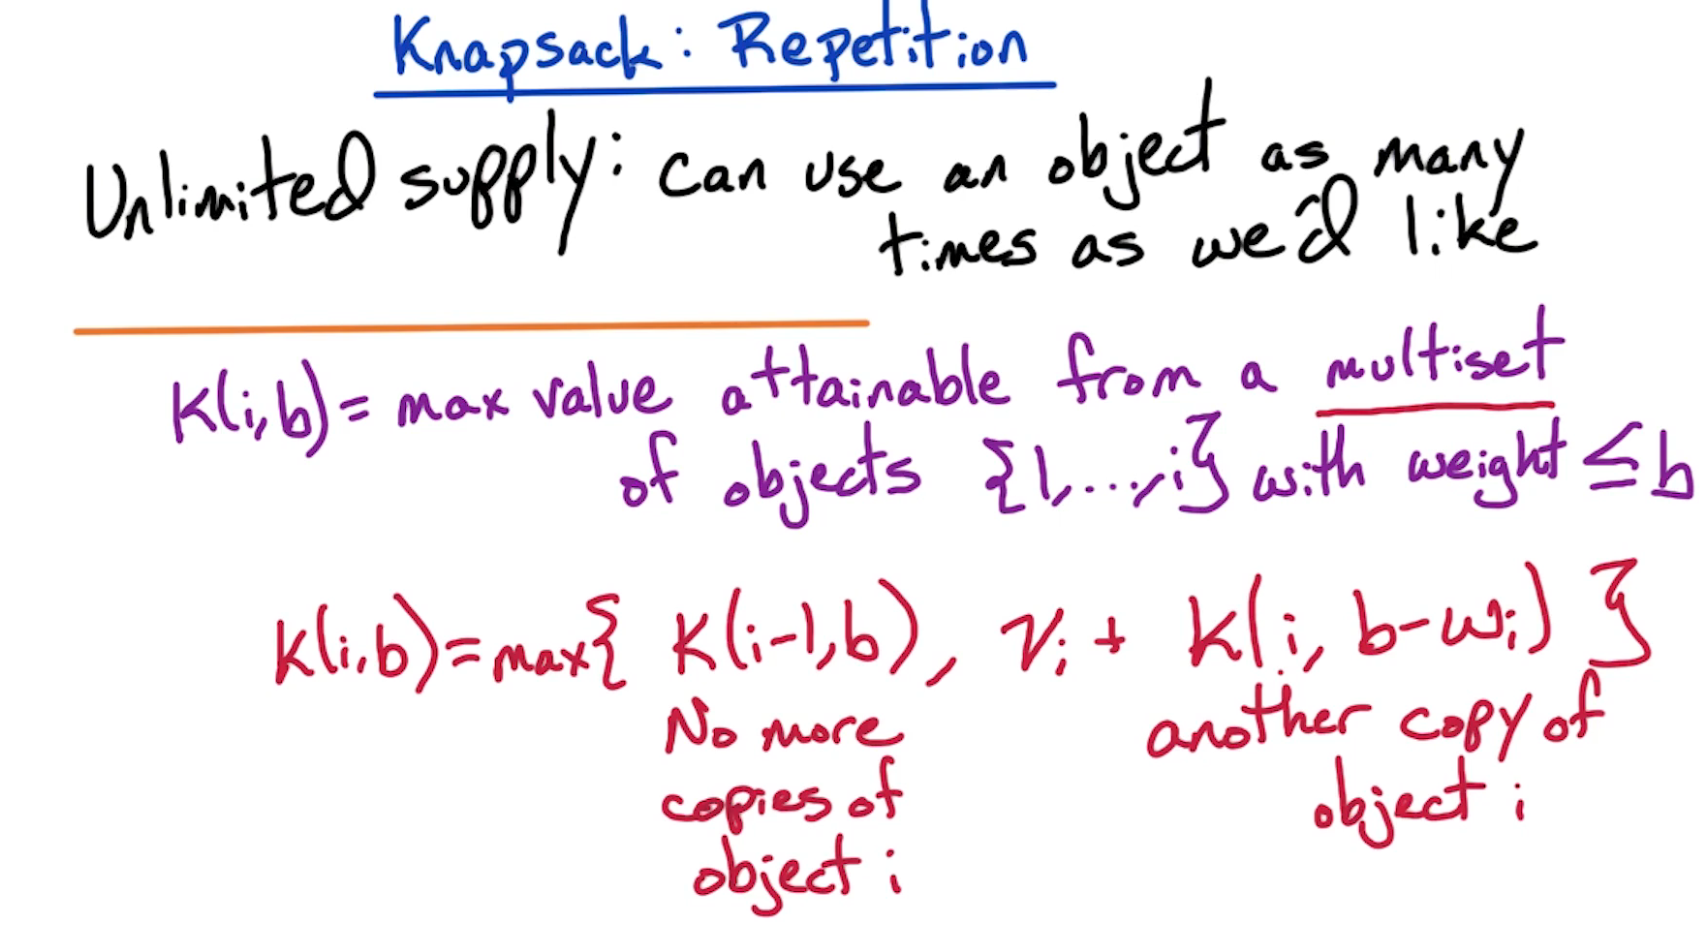 Knapsack: Repetition
Unlimited supply: can use an object as many
times as we'd like
K(i,b) = max value attainable from a multiset
of objects {1,...,i} with weight ≤ b
K(i,b) = max{ K(i-1,b), vi + K(i, b-wi) }
No more
copies of
object i
another copy of
object i